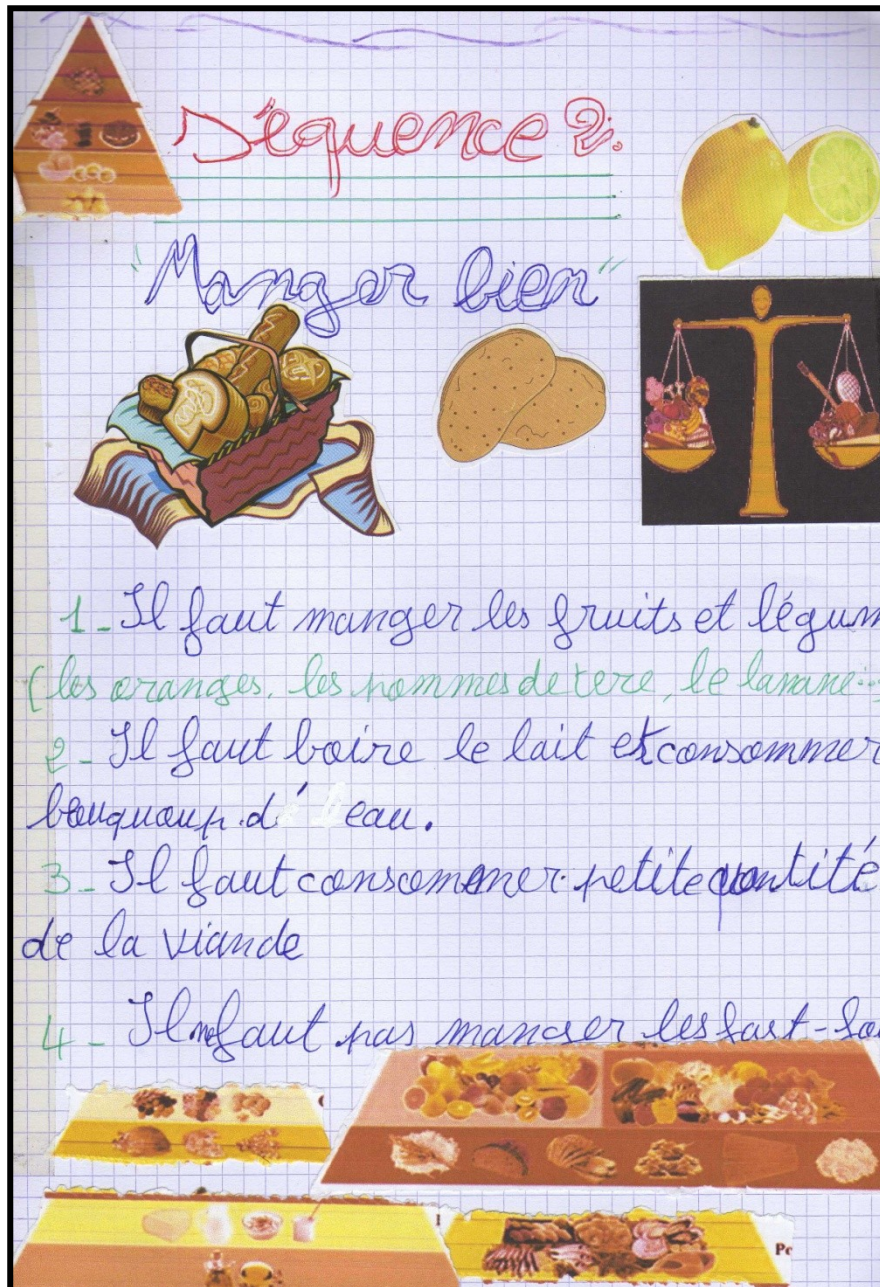 Séquence 2:
"Manger bien"
1_Il faut manger les fruits et légum
(les oranges. les pommes de tere, le banane...
2_Il faut boire le lait et consommer
beauquoup.d' eau.
3_Il faut consommer petite quantité
de la viande
4_Il ne faut pas manger les fast-foo
Pe